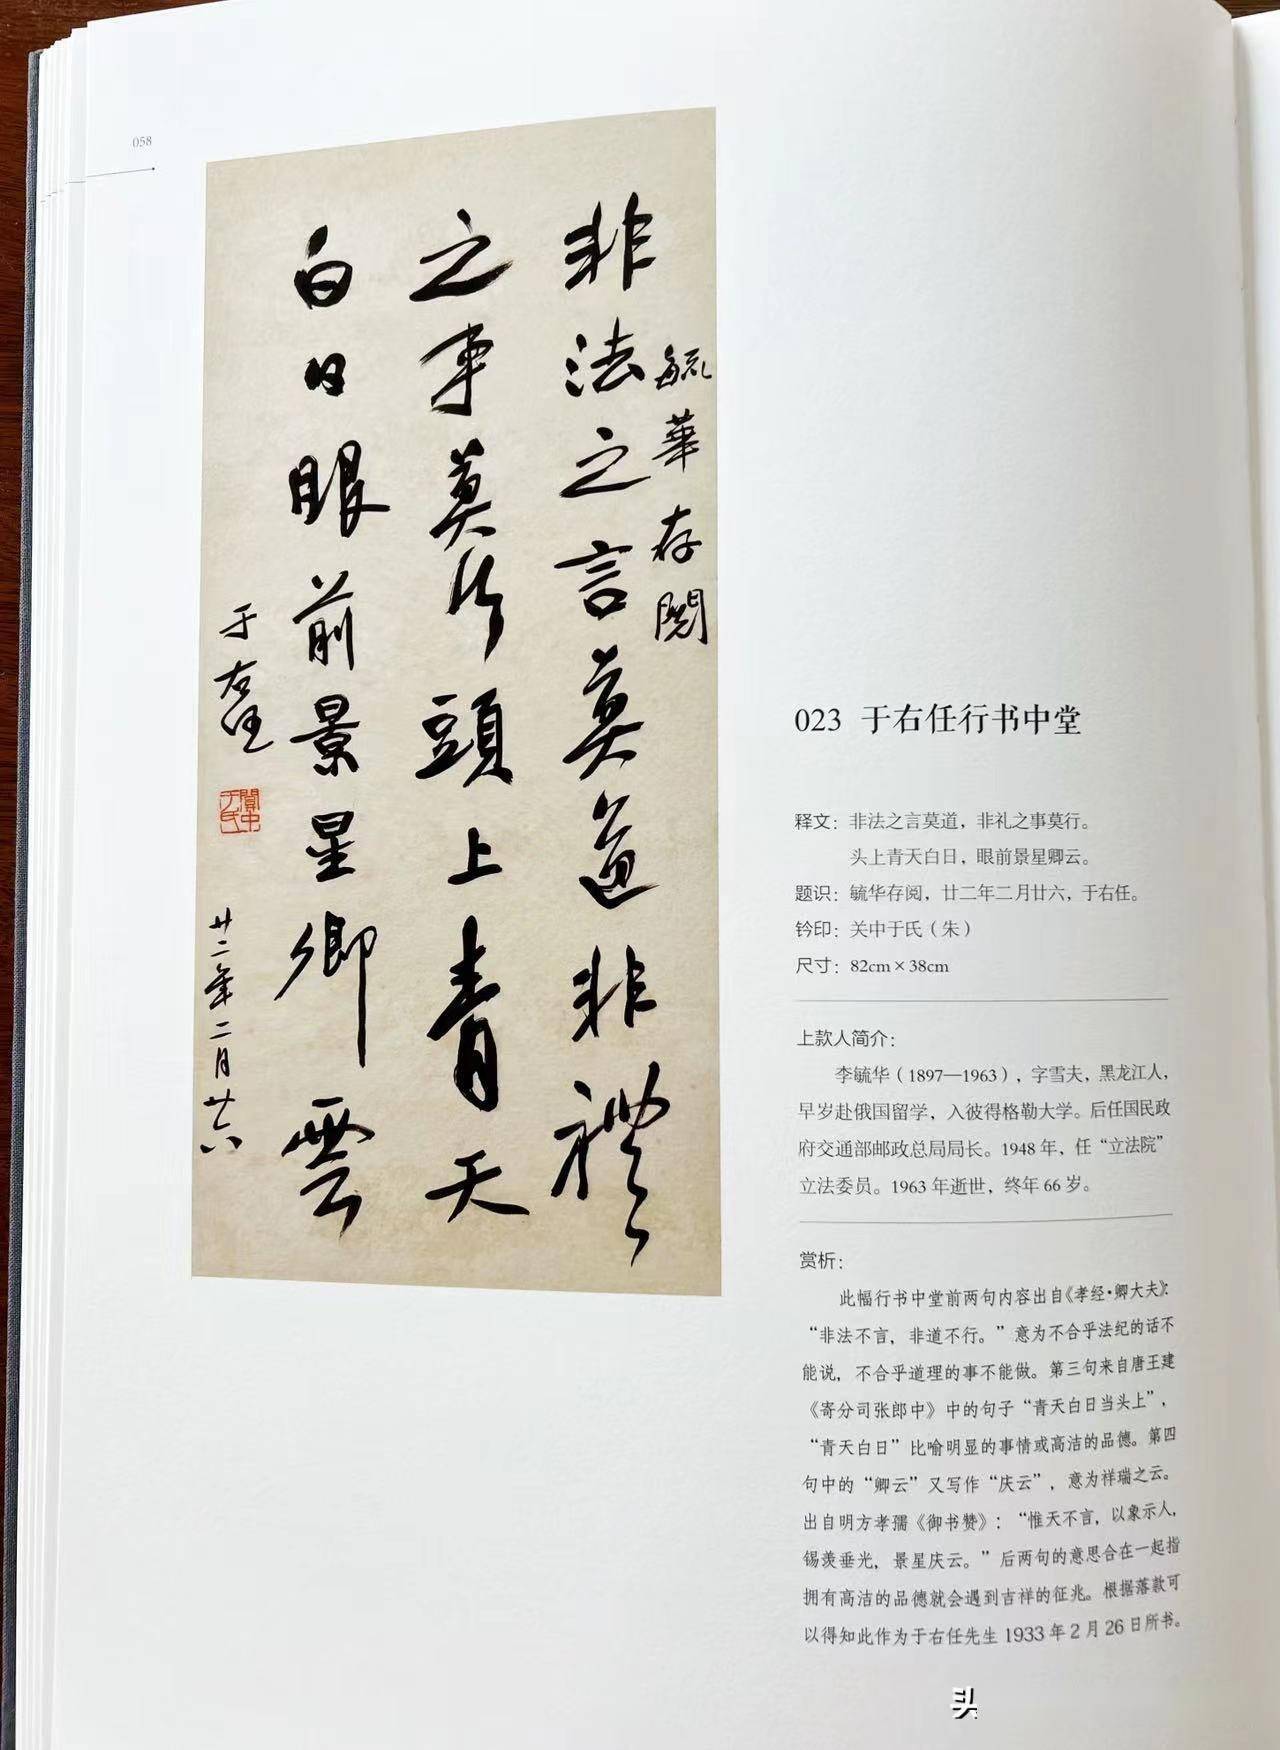 058
毓華存閱
非法之言莫道非禮
之事莫行頭上青天
白日眼前景星卿雲
于右任
關中于氏
廿二年二月廿六
023 于右任行书中堂
释文：非法之言莫道，非礼之事莫行。
头上青天白日，眼前景星卿云。
题识：毓华存阅，廿二年二月廿六，于右任。
钤印：关中于氏（朱）
尺寸：82cm×38cm
上款人简介：
李毓华（1897—1963），字雪夫，黑龙江人，
早岁赴俄国留学，入彼得格勒大学。后任国民政
府交通部邮政总局局长。1948年，任“立法院”
立法委员。1963年逝世，终年66岁。
赏析：
此幅行书中堂前两句内容出自《孝经·卿大夫》：
“非法不言，非道不行。”意为不合乎法纪的话不
能说，不合乎道理的事不能做。第三句来自唐王建
《寄分司张郎中》中的句子“青天白日当头上”，
“青天白日”比喻明显的事情或高洁的品德。第四
句中的“卿云”又写作“庆云”，意为祥瑞之云。
出自明方孝孺《御书赞》：“惟天不言，以象示人，
锡羡垂光，景星庆云。”后两句的意思合在一起指
拥有高洁的品德就会遇到吉祥的征兆。根据落款可
以得知此作为于右任先生1933年2月26日所书。
头